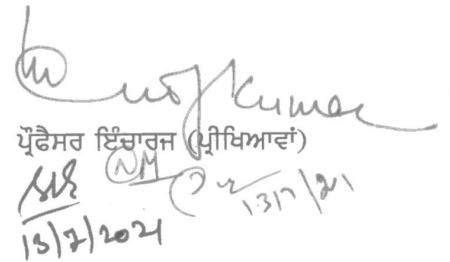 Kumar
ਪ੍ਰੋਫੈਸਰ ਇੰਚਾਰਜ (ਪ੍ਰੀਖਿਆਵਾਂ)
NM 13/7/21
13/7/2021